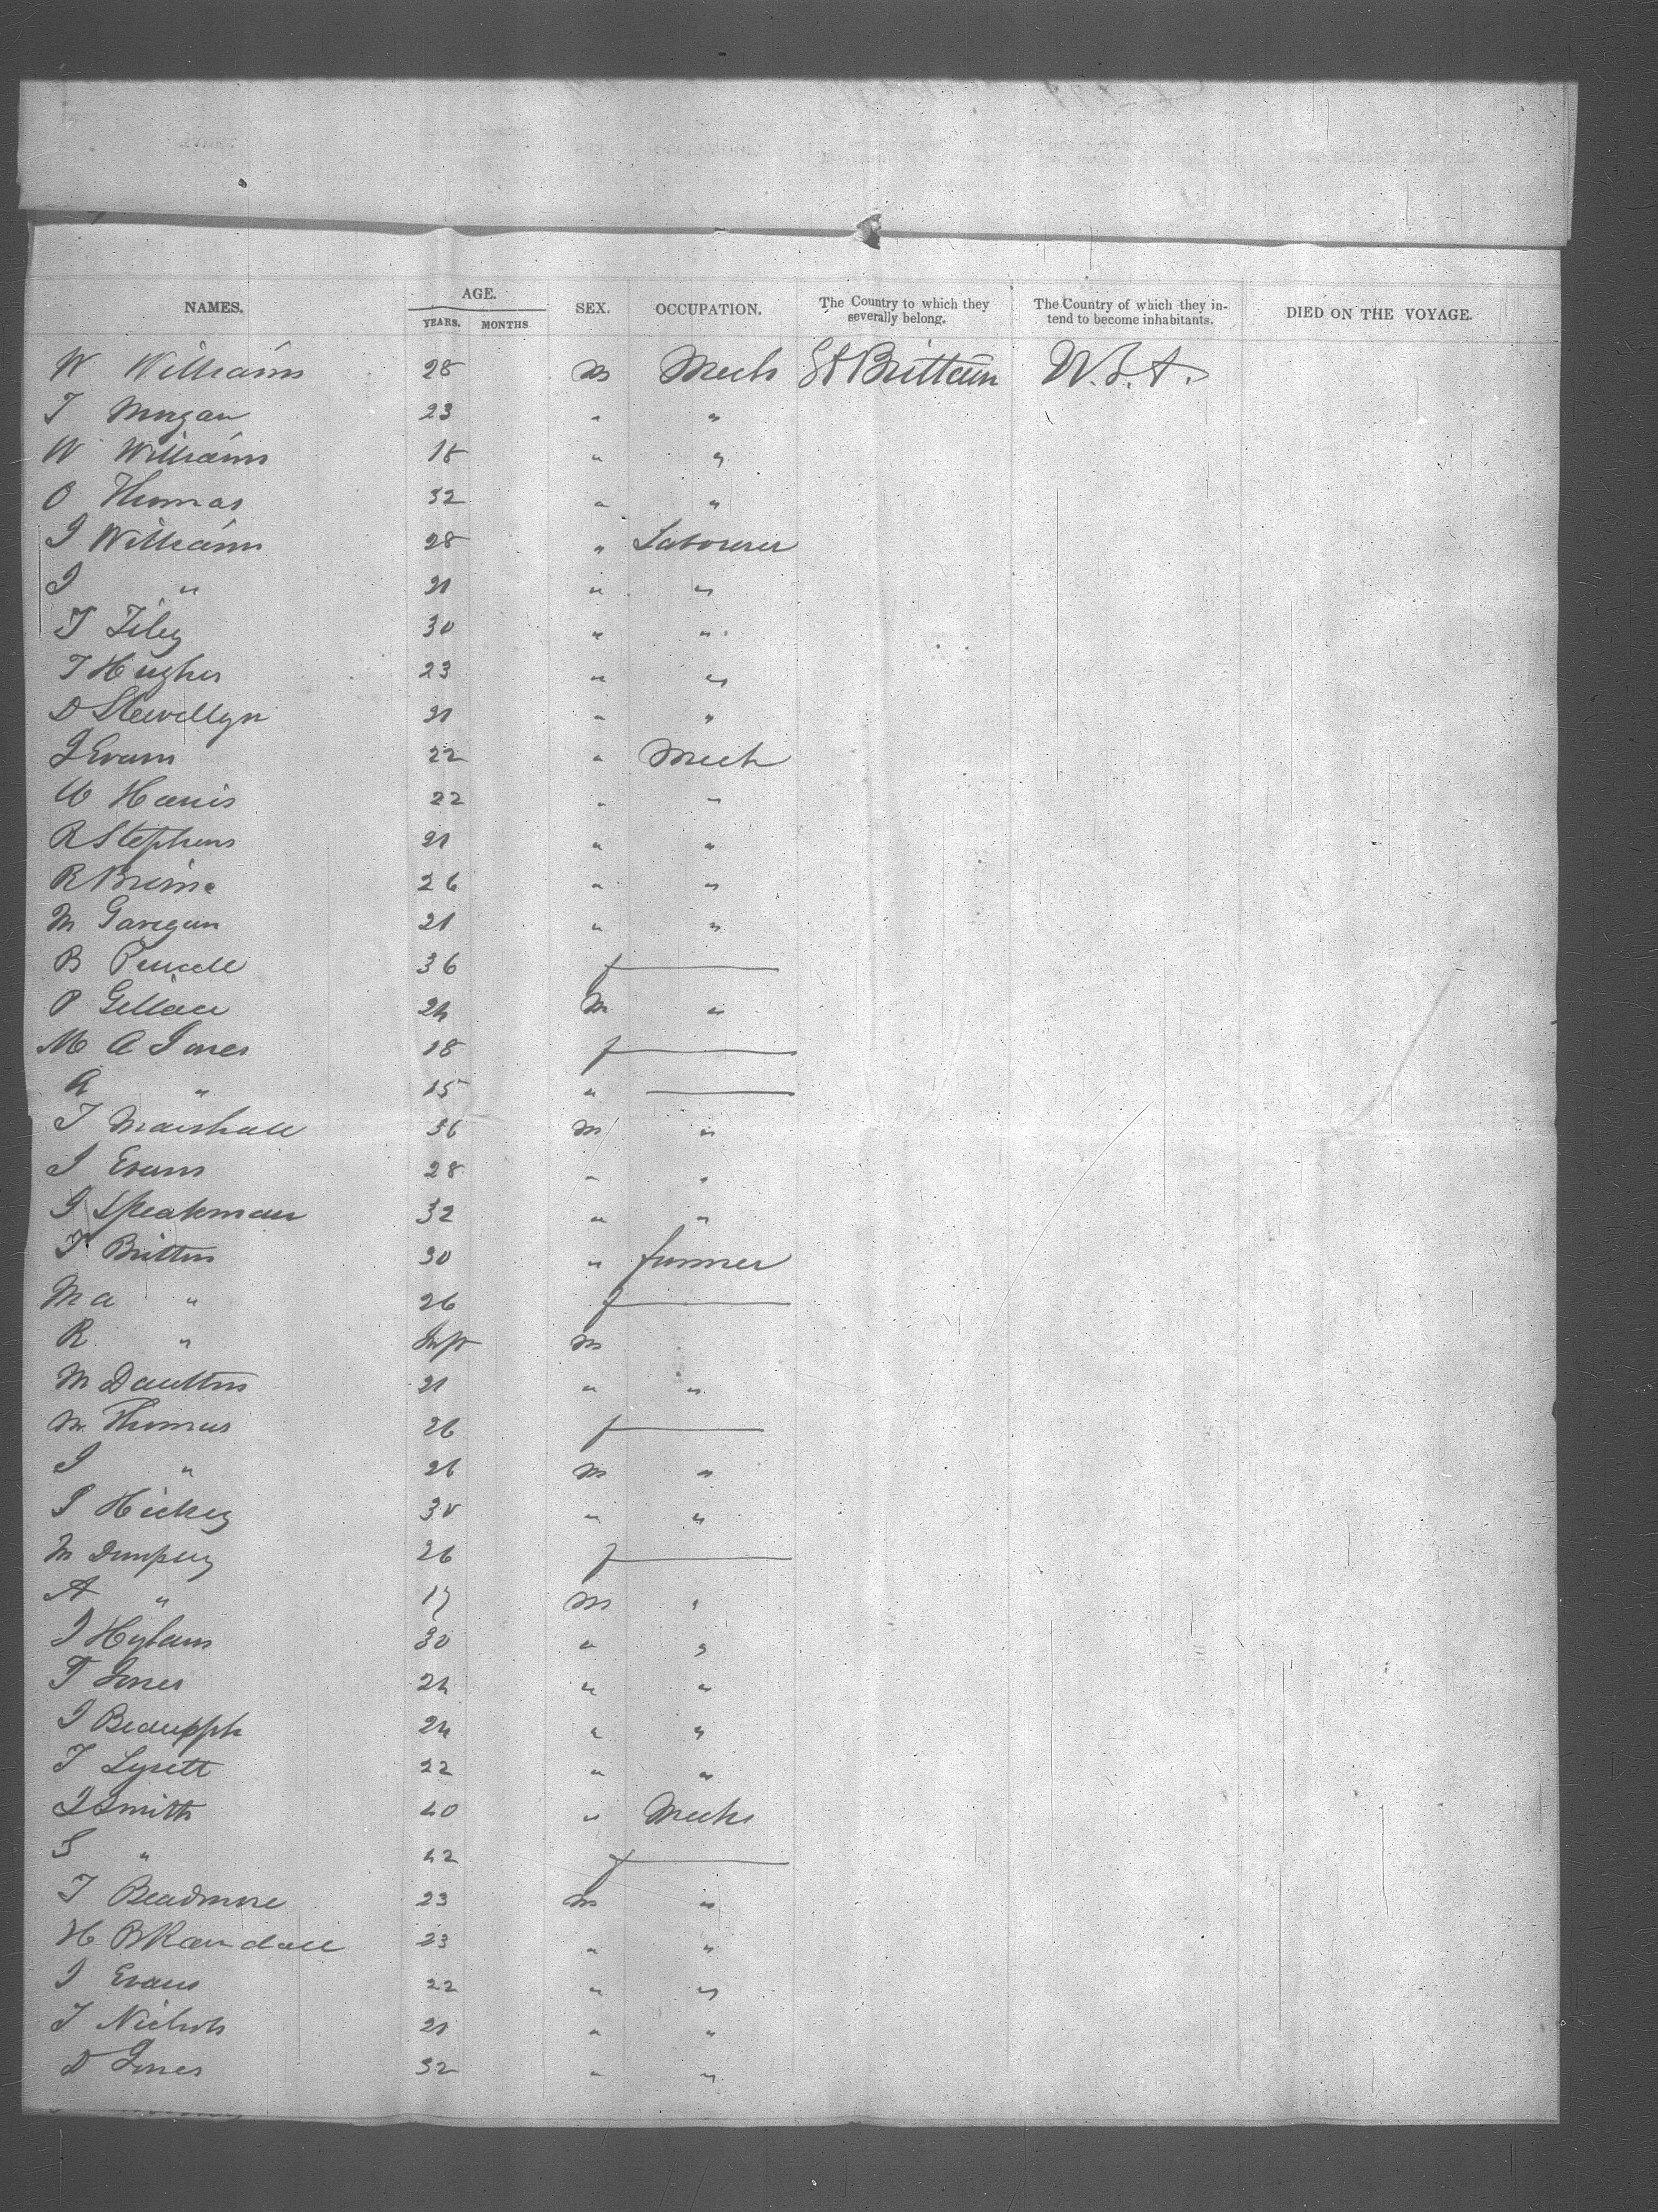 NAMES. AGE. YEARS. MONTHS SEX. OCCUPATION. The Country to which they severally belong. The Country of which they intend to become inhabitants. DIED ON THE VOYAGE.
W Williams 28 M Mech Gt Brittain U.S.A.
T Morgan 23 " "
W Williams 18 " "
O Thomas 32 " "
J Williams 28 " Labourer
J " 21 " "
T Tiley 30 " "
T Hughes 23 " "
D Llewellyn 21 " "
J Evans 22 " Mech
W Harris 22 " "
R Stephens 21 " "
R 26 " "
M Garegan 21 " "
B Purcell 36 f
P 24 M "
M A Jones 18 f
A " 15 "
T Marshall 36 M "
J Evans 28 " "
J Speakman 32 " "
T Britton 30 " farmer
M a " 26 f
R " Inft M
M Daulton 21 " "
M Thomas 26 f
J " 26 M "
J Hickey 30 " "
M Dempsey 26 f
A " 17 M "
J Hylans 30 " "
T Jones 24 " "
J 24 " "
T Lysett 22 " "
J Smith 40 " Mech
S " 42 f
T Beadmore 23 M "
H B Randall 23 " "
J Evans 22 " "
T Nichols 21 " "
D Jones 32 " "